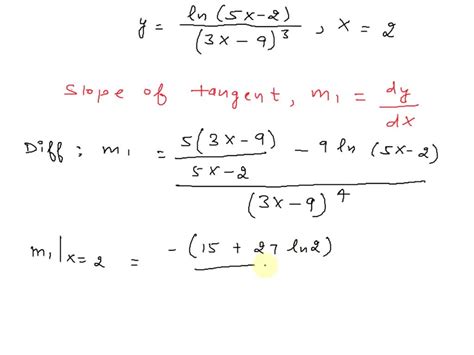 y = ln (5x-2) / (3x-9)^3 , x = 2
Slope of tangent, m1 = dy/dx
Diff: m1 = (5(3x-9)/(5x-2) - 9 ln (5x-2)) / (3x-9)^4
m1|x=2 = -(15 + 27 ln2)